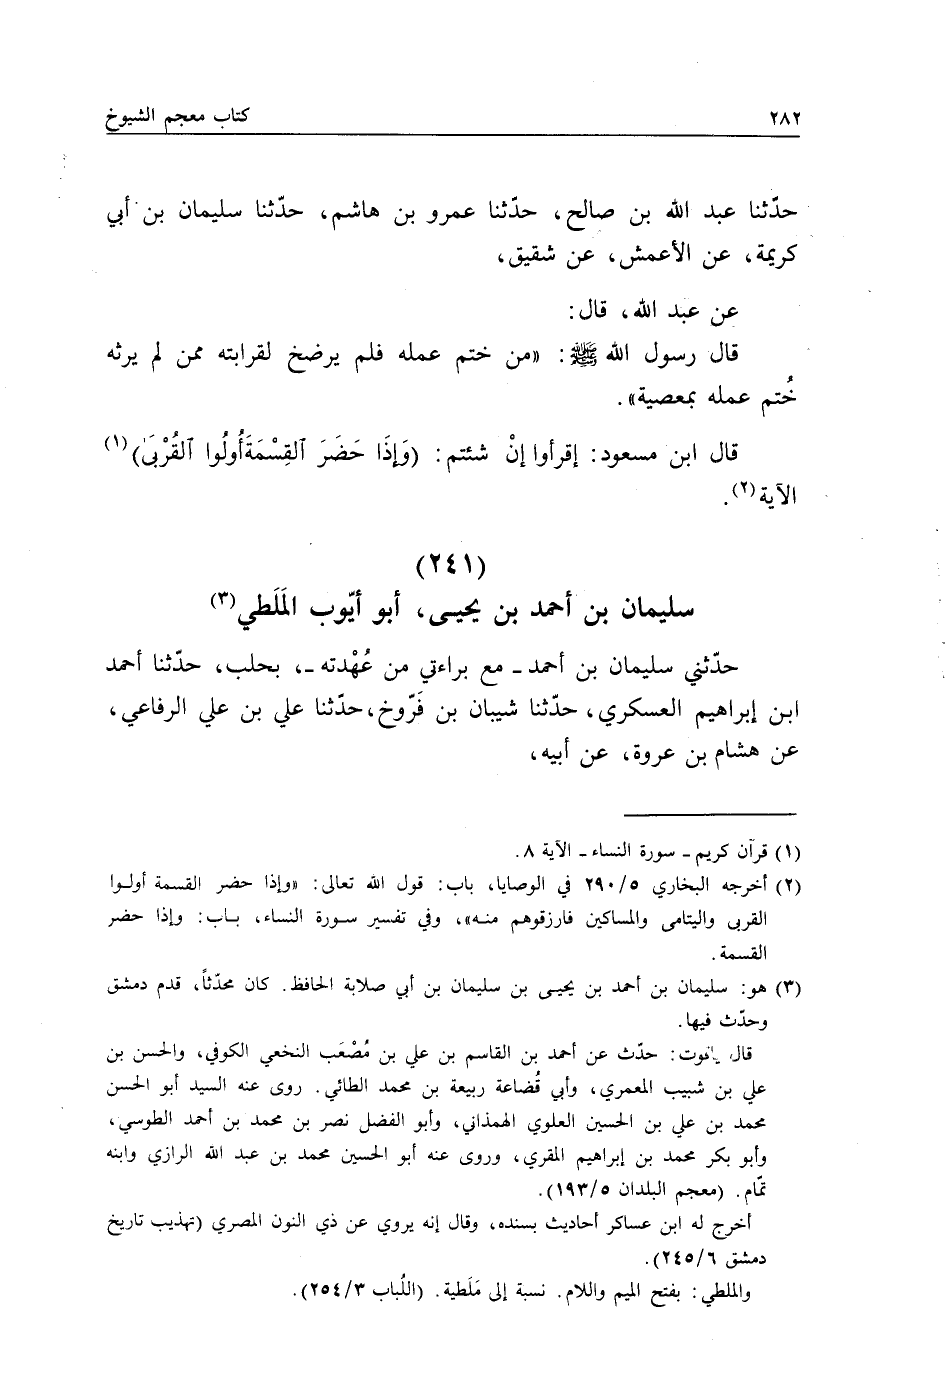 ٢٨٢ كتاب معجم الشيوخ
حدّثنا عبد الله بن صالح، حدّثنا عمرو بن هاشم، حدّثنا سليمان بن أبي
كريمة، عن الأعمش، عن شقيق،
عن عبد الله، قال:
قال رسول الله ﷺ: «من ختم عمله فلم يرضخ لقرابته ممن لم يرثه
خُتم عمله بمعصية».
قال ابن مسعود: إقرأوا إنْ شئتم: (وَإِذَا حَضَرَ ٱلقِسْمَةَ أُولُوا ٱلقُرْبَىٰ)(١)
الآية(٢).
(٢٤١)
سليمان بن أحمد بن يحيى، أبو أيّوب المَلَطي(٣)
حدّثني سليمان بن أحمد - مع براءتي من عُهْدته -، بحلب، حدّثنا أحمد
ابن إبراهيم العسكري، حدّثنا شيبان بن فَرّوخ، حدّثنا علي بن علي الرفاعي،
عن هشام بن عروة، عن أبيه،
(١) قرآن كريم - سورة النساء - الآية ٨.
(٢) أخرجه البخاري ٢٩٠/٥ في الوصايا، باب: قول الله تعالى: «وإذا حضر القسمة أولوا
القربى واليتامى والمساكين فارزقوهم منه»، وفي تفسير سورة النساء، باب: وإذا حضر
القسمة.
(٣) هو: سليمان بن أحمد بن يحيى بن سليمان بن أبي صلابة الحافظ. كان محدّثاً، قدم دمشق
وحدّث فيها.
قال ياقوت: حدّث عن أحمد بن القاسم بن علي بن مُصْعَب النخعي الكوفي، والحسن بن
علي بن شبيب المعمري، وأبي قُضاعة ربيعة بن محمد الطائي. روى عنه السيد أبو الحسن
محمد بن علي بن الحسين العلوي الهمذاني، وأبو الفضل نصر بن محمد بن أحمد الطوسي،
وأبو بكر محمد بن إبراهيم المقري، وروى عنه أبو الحسين محمد بن عبد الله الرازي وابنه
تمّام. (معجم البلدان ١٩٣/٥).
أخرج له ابن عساكر أحاديث بسنده، وقال إنه يروي عن ذي النون المصري (تهذيب تاريخ
دمشق ٢٤٥/٦).
والملطي: بفتح الميم واللام. نسبة إلى مَلَطية. (اللُباب ٢٥٤/٣).